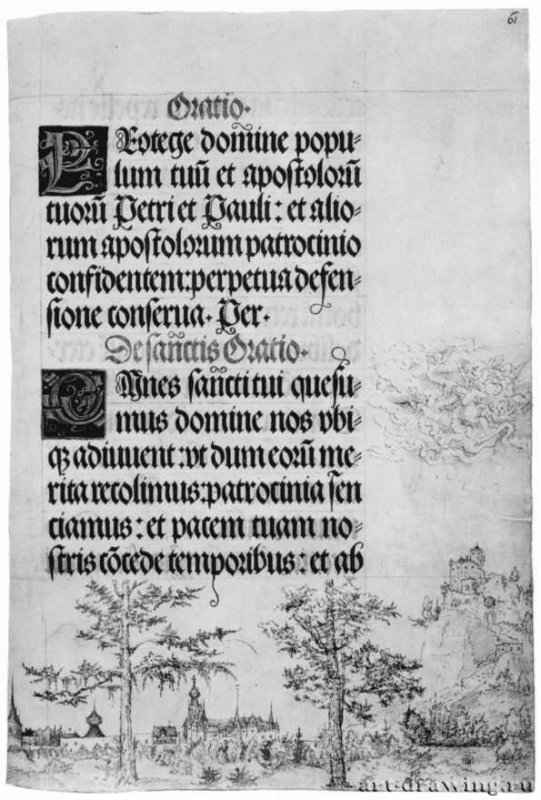 61
Oratio.
PRotege domine popu-
lum tuū et apostolorū
tuorū Petri et Pauli: et alio-
rum apostolorum patrocinio
confidentem: perpetua defen-
sione conserua. Per.
De sanctis Oratio.
OMnes sancti tui quesu-
mus domine nos vbi-
qȝ adiuuent: vt dum eorū me-
rita recolimus: patrocinia sen
ciamus: et pacem tuam no-
stris cōcede temporibus: et ab
art-drawing.ru